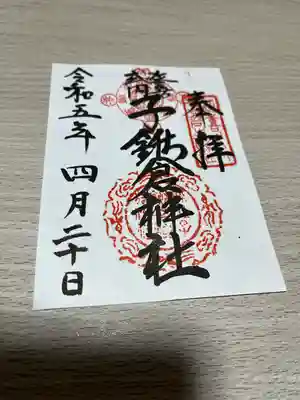 奉拝
子鍬倉神社
令和五年 四月二十日